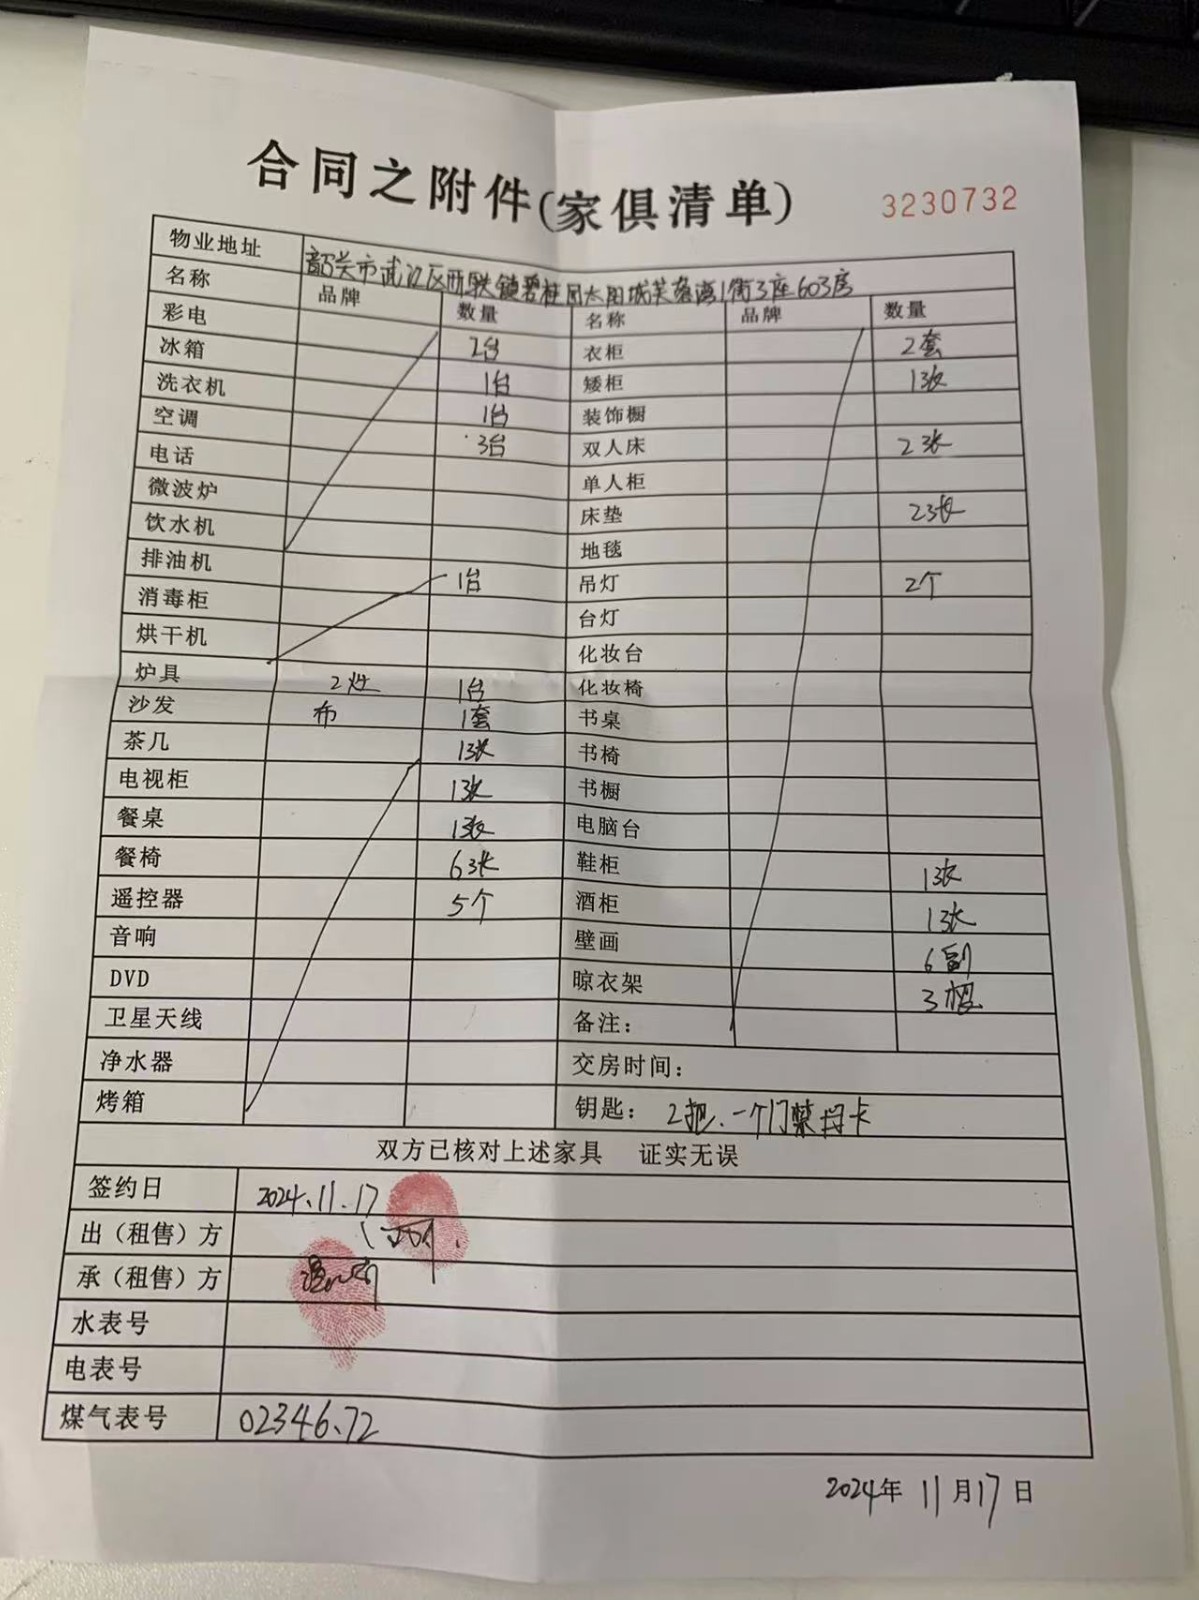 合同之附件(家俱清单)
3230732
物业地址 韶关市武江区西联镇碧桂园太阳城芙蓉湾1街3座603房
名称 品牌 数量 名称 品牌 数量
彩电 2台 衣柜 2套
冰箱 1台 矮柜 1张
洗衣机 1台 装饰橱
空调 3台 双人床 2张
电话 单人柜
微波炉 床垫 2张
饮水机 地毯
排油机 1台 吊灯 2个
消毒柜 台灯
烘干机 化妆台
炉具 2灶 1台 化妆椅
沙发 布 1套 书桌
茶几 1张 书椅
电视柜 1张 书橱
餐桌 1张 电脑台
餐椅 6张 鞋柜 1张
遥控器 5个 酒柜 1张
音响 壁画 6副
DVD 晾衣架 3
卫星天线 备注：
净水器 交房时间：
烤箱 钥匙： 2把、一个门禁卡
双方已核对上述家具 证实无误
签约日 2024.11.17
出（租售）方
承（租售）方
水表号
电表号
煤气表号 02346.72
2024年 11月17日